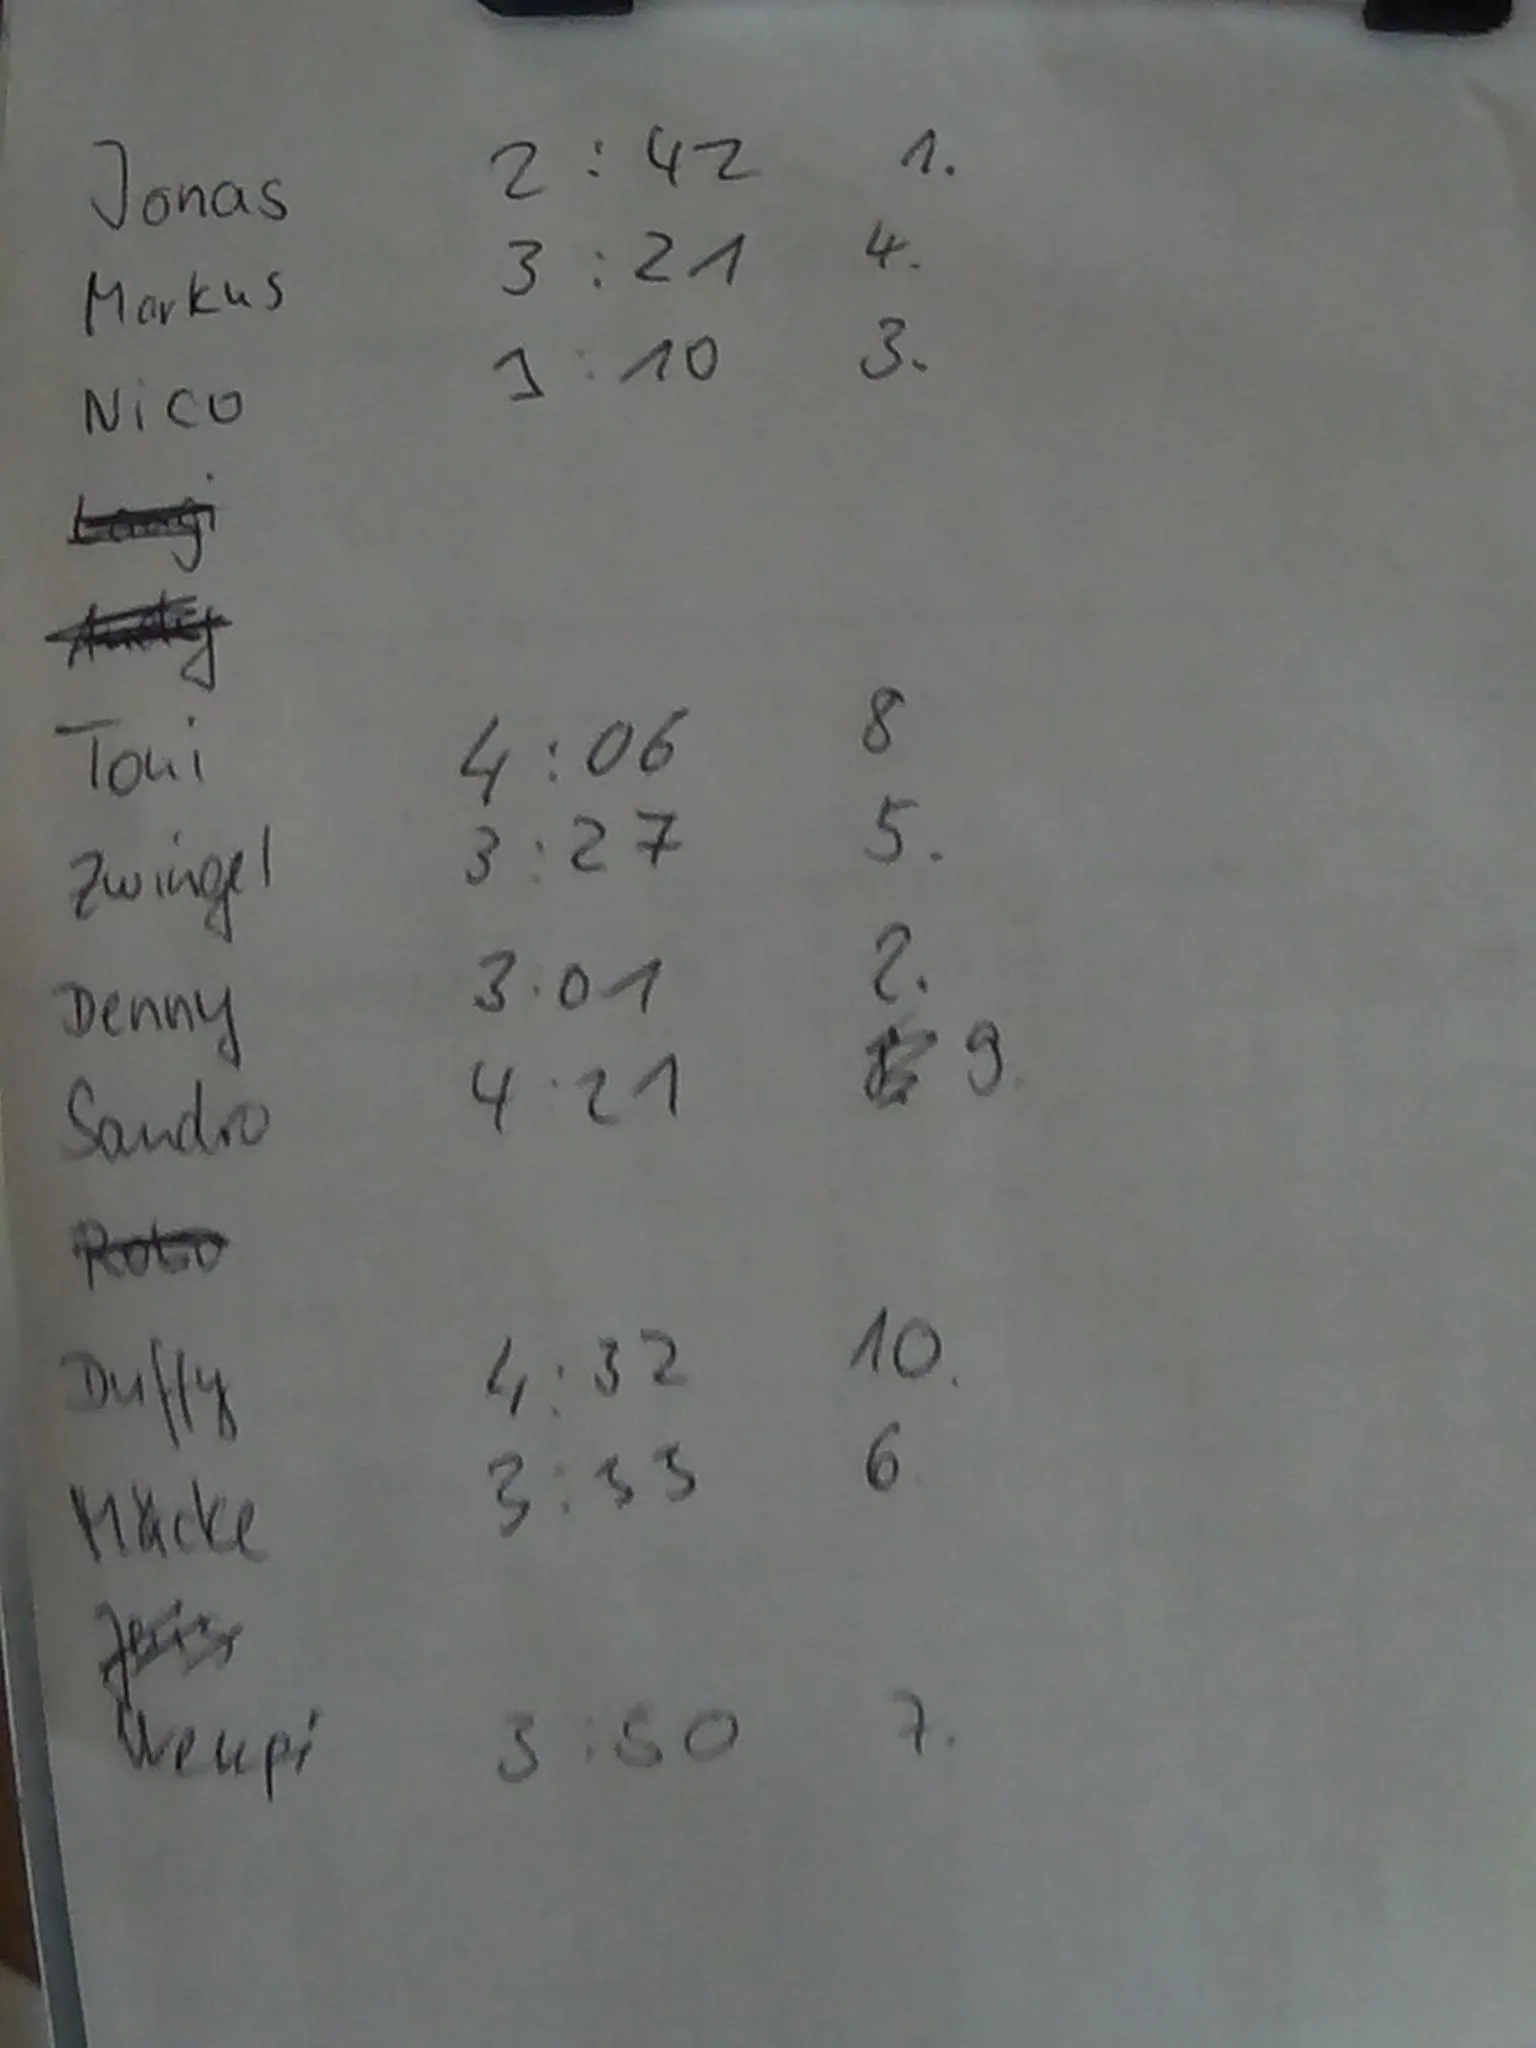 Jonas 2:42 1.
Markus 3:21 4.
Nico 3:10 3.
Toni 4:06 8
Zwingel 3:27 5.
Denny 3:01 2.
Sandro 4:21 9.
Robo
Duffy 4:32 10.
Mäcke 3:33 6.
3:50 7.